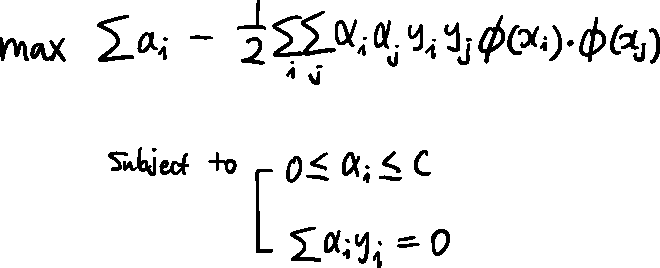 max ∑αᵢ − 1/2 ∑ᵢ∑ⱼ αᵢ αⱼ yᵢ yⱼ ϕ(xᵢ)·ϕ(xⱼ)
Subject to 0 ≤ αᵢ ≤ C
∑αᵢyᵢ = 0